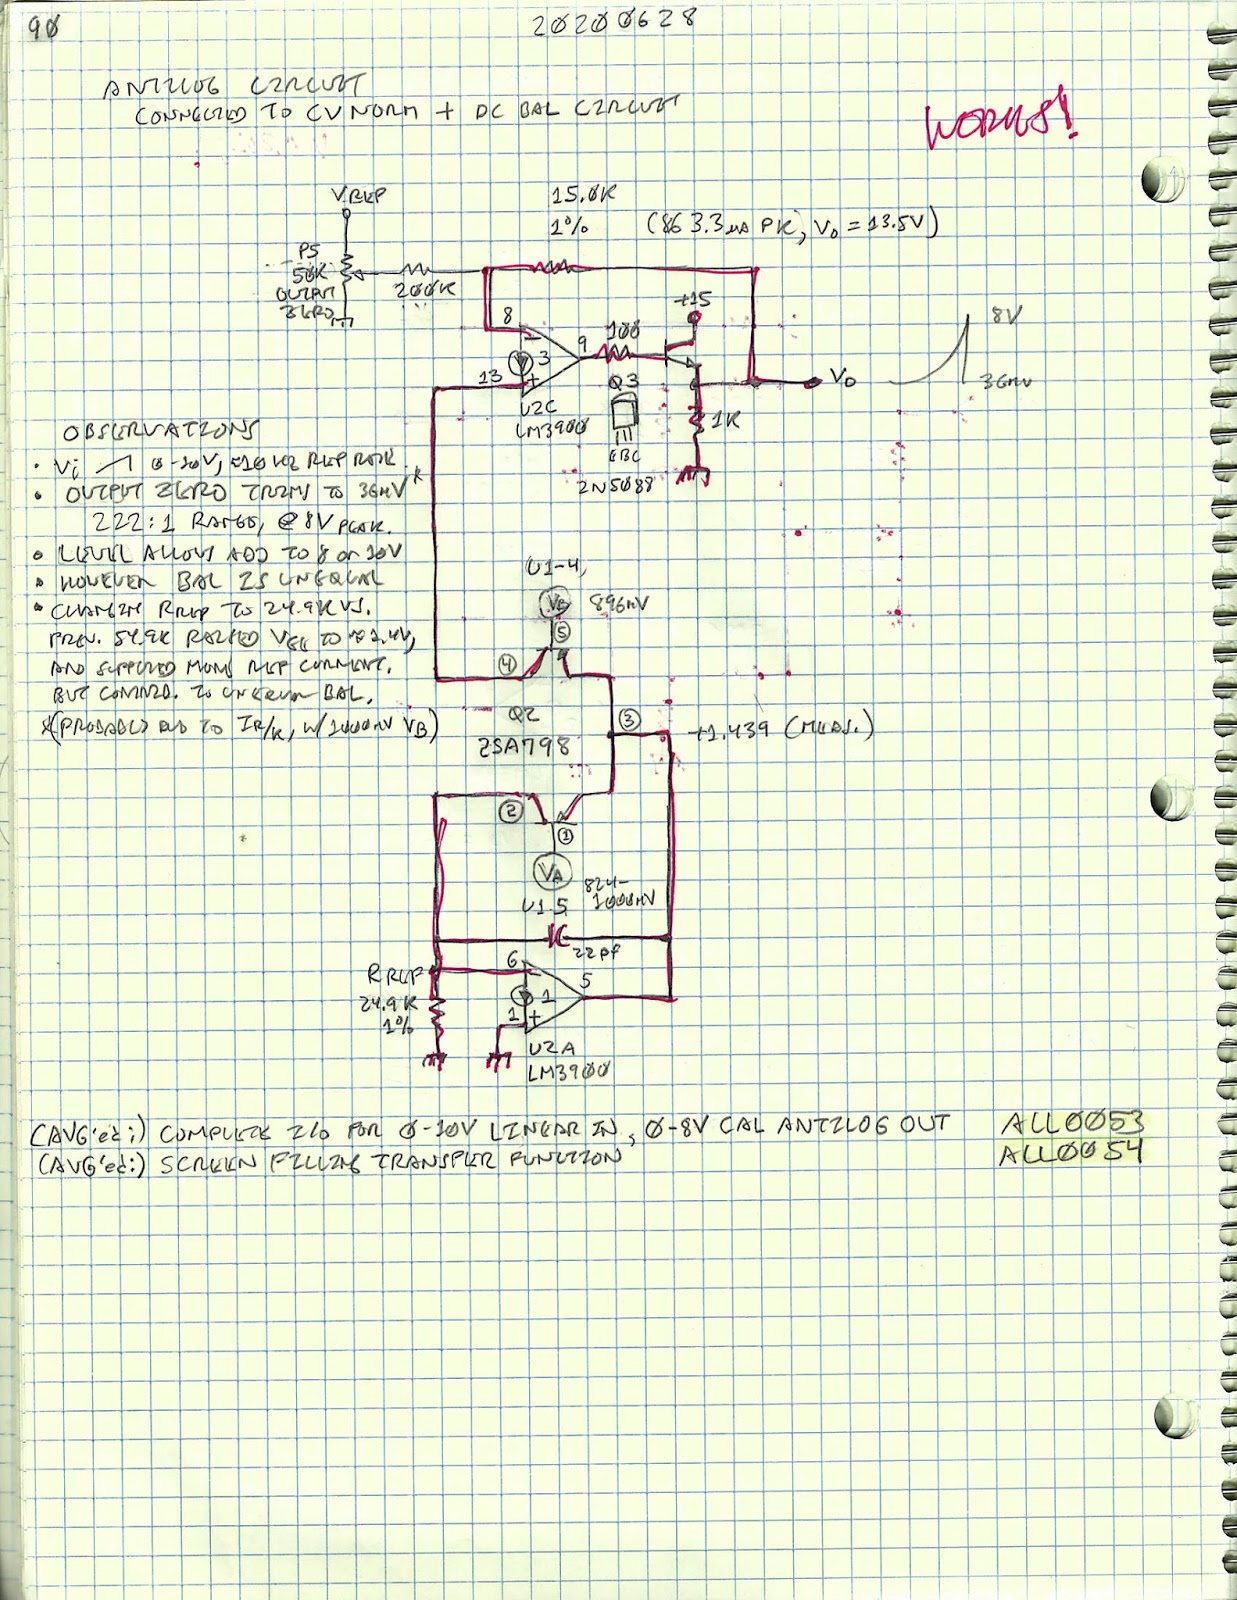 90
20200628
ANTILOG CIRCUIT
CONNECTED TO CV NORM + DC BAL CIRCUIT
WORKS!
VREF
15.0K
1%
(863.3µA PK, Vo = 13.5V)
P5
50K
OUTPUT
ZERO
200K
+15
8
100
9
3
13
+
U2C
LM3900
Q3
EBC
2N5088
1K
Vo
8V
36mV
OBSERVATIONS
• Vi 0-10V, ≈10 HZ REP RATE
• OUTPUT ZERO TRIMS TO 36mV*
222:1 RANGE, @ 8V PEAK.
• LEVEL ALLOWS ADJ TO 8 OR 10V
• HOWEVER BAL IS UNEQUAL
• CHANGING RREF TO 24.9K VS.
PREV. 54.9K RAISED VEE TO ≈1.4V,
AND SUPPLIED MORE REF CURRENT.
BUT CONTRIB. TO UNEQUAL BAL.
*(PROBABLY DUE TO IR/K, W/1000mV VB)
U1-4,
VB
896mV
5
4
Q2
2SA798
3
+1.439 (MEAS.)
2
1
VA
824-
1000mV
U1 5
22pf
RREF
24.9K
1%
6
5
1
1
+
U2A
LM3900
(AVG'ed:) COMPLETE I/O FOR 0-10V LINEAR IN, 0-8V CAL ANTILOG OUT ALL0053
(AVG'ed:) SCREEN FILLING TRANSFER FUNCTION ALL0054